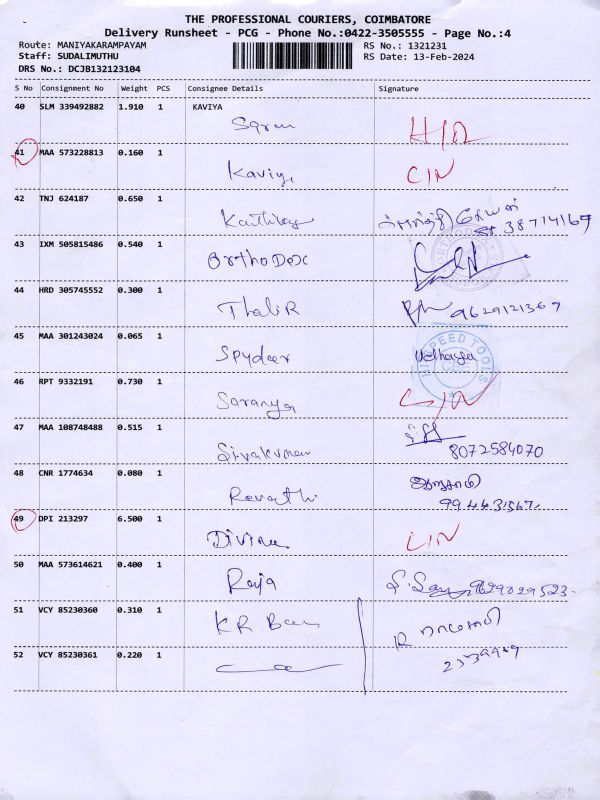 THE PROFESSIONAL COURIERS, COIMBATORE
Delivery Runsheet - PCG - Phone No.:0422-3505555 - Page No.:4
Route: MANIYAKARAMPAYAM
RS No.: 1321231
Staff: SUDALIMUTHU
RS Date: 13-Feb-2024
DRS No.: DCJB132123104
S No Consignment No Weight PCS Consignee Details Signature
40 SLM 339492882 1.910 1 KAVIYA
41 MAA 573228813 0.160 1
Kaviya
42 TNJ 624187 0.650 1
43 IXM 505815486 0.540 1
OrthoDesc
44 HRD 305745552 0.300 1
ThaliR 9629121369
45 MAA 301243024 0.065 1
Spydeer
HI SPEED TOOLS
46 RPT 9332191 0.730 1
Saranya
47 MAA 108748488 0.515 1
Sivakumar
8072584070
48 CNR 1774634 0.080 1
Revathi
49 DPI 213297 6.500 1
Divine
50 MAA 573614621 0.400 1
Raja
51 VCY 85230360 0.310 1
KR
52 VCY 85230361 0.220 1